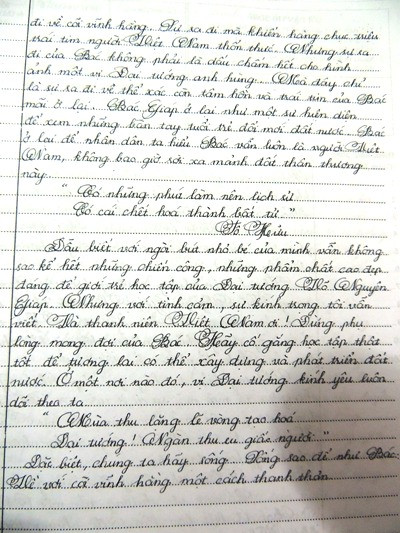 đi về cõi vĩnh hằng. Sự ra đi mà khiến hàng chục triệu
trái tim người Việt Nam thổn thức. Nhưng sự ra
đi của Bác không phải là dấu chấm hết cho hình
ảnh một vị Đại tướng anh hùng. Mà đây chỉ
là sự ra đi về thể xác còn tâm hồn và trái tim của Bác
mãi ở lại. Bác Giáp ở lại như một sự hiện diện
để xem những bàn tay tuổi trẻ đổi mới đất nước. Bác
ở lại để nhân dân ta hiểu Bác vẫn luôn là người Việt
Nam, không bao giờ rời xa mảnh đất thân thương
này.
" Có những phút làm nên lịch sử
Có cái chết hoá thành bất tử. "
Tố Hữu
Dẫu biết với ngòi bút nhỏ bé của mình vẫn không
sao kể hết những chiến công, những phẩm chất cao đẹp
đáng để giới trẻ học tập của Đại tướng Võ Nguyên
Giáp. Nhưng với tình cảm, sự kính trọng tôi vẫn
viết. Hà thanh niên Việt Nam ơi! Đừng phụ
lòng mong đợi của Bác. Hãy cố gắng học tập thật
tốt để tương lai có thể xây dựng và phát triển đất
nước. Ở một nơi nào đó, vị Đại tướng kính yêu luôn
dõi theo ta.
" Mùa thu lặng lẽ vòng tao hoá
Đại tướng! Ngàn thu ru giấc người "
Đặc biệt, chúng ta hãy sống sao để như Bác:
Về với cõi vĩnh hằng một cách thanh thản